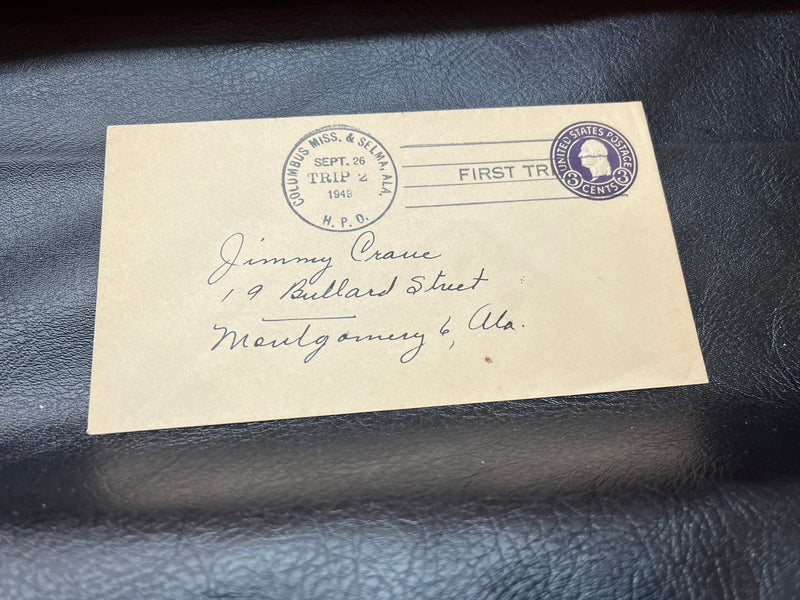 COLUMBUS MISS. & SELMA, ALA.
SEPT. 26
TRIP 2
1949
H. P. O.
FIRST TRI
UNITED STATES POSTAGE
3 CENTS 3
Jimmy Crane
19 Bullard Street
Montgomery 6, Ala.